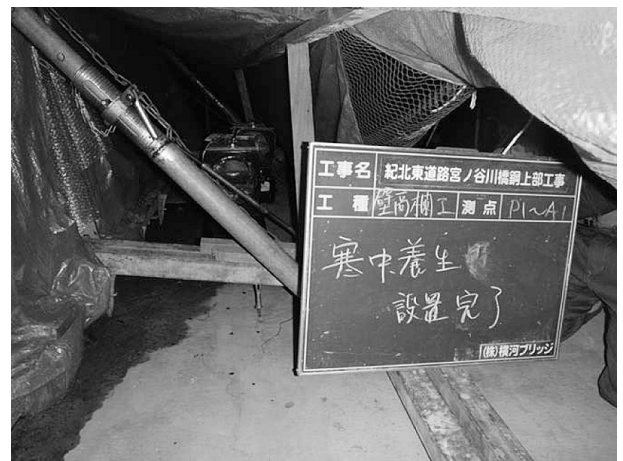 工事名 紀北東道路宮ノ谷川橋鋼上部工事
工種 壁高欄工 測点 P1~A1
寒中養生
設置完了
(株)横河ブリッジ